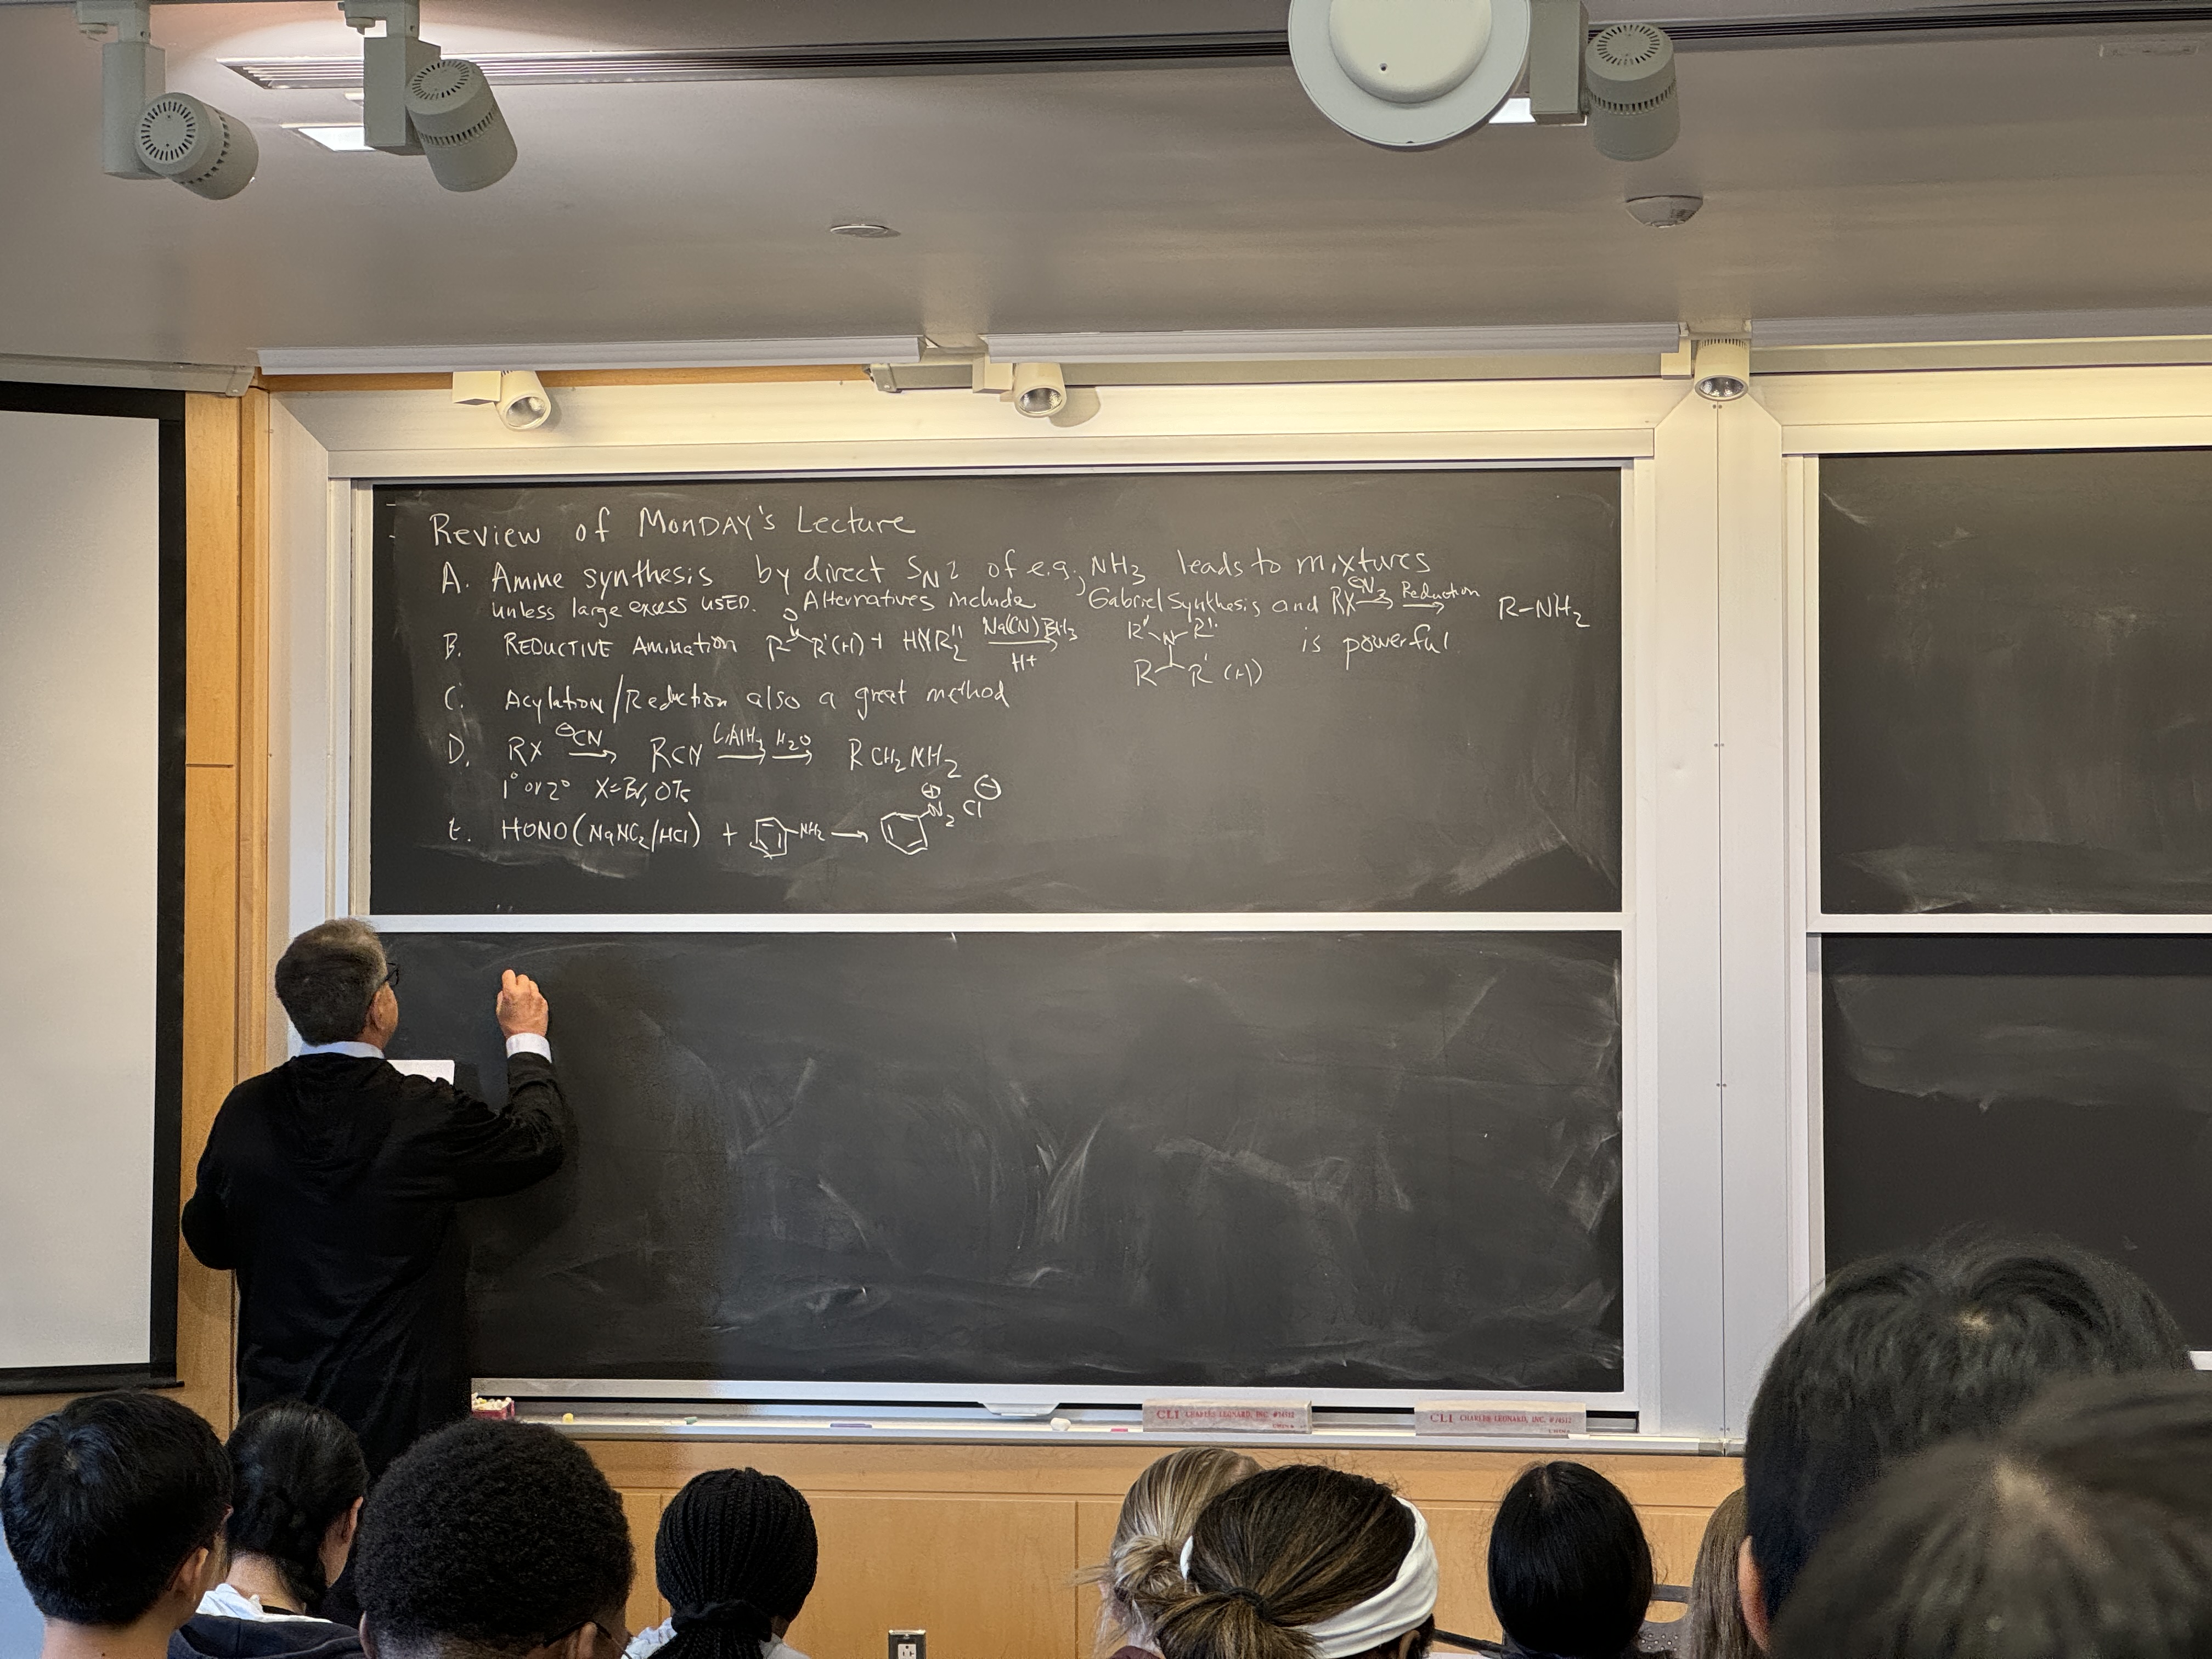 Review of Monday's Lecture
A. Amine synthesis by direct SN2 of e.g., NH3 leads to mixtures
unless large excess USED. Alternatives include Gabriel Synthesis and RX ⊖N3→ Reduction→ R-NH2
B. REDUCTIVE Amination R R'(H) + HNR2'' Na(CN)BH3 H+ R'' N R'' R R'(H) is powerful.
O
C. Acylation/Reduction also a great method
D. RX ⊖CN→ RCN LiAlH4→ H2O→ RCH2NH2
1° or 2° X=Br, OTs
E. HONO (NaNO2/HCl) + NH2 → ⊕N2 Cl ⊖
CLI CHARLES LEONARD, INC. #74512
CHINA
CLI CHARLES LEONARD, INC. #74512
CHINA